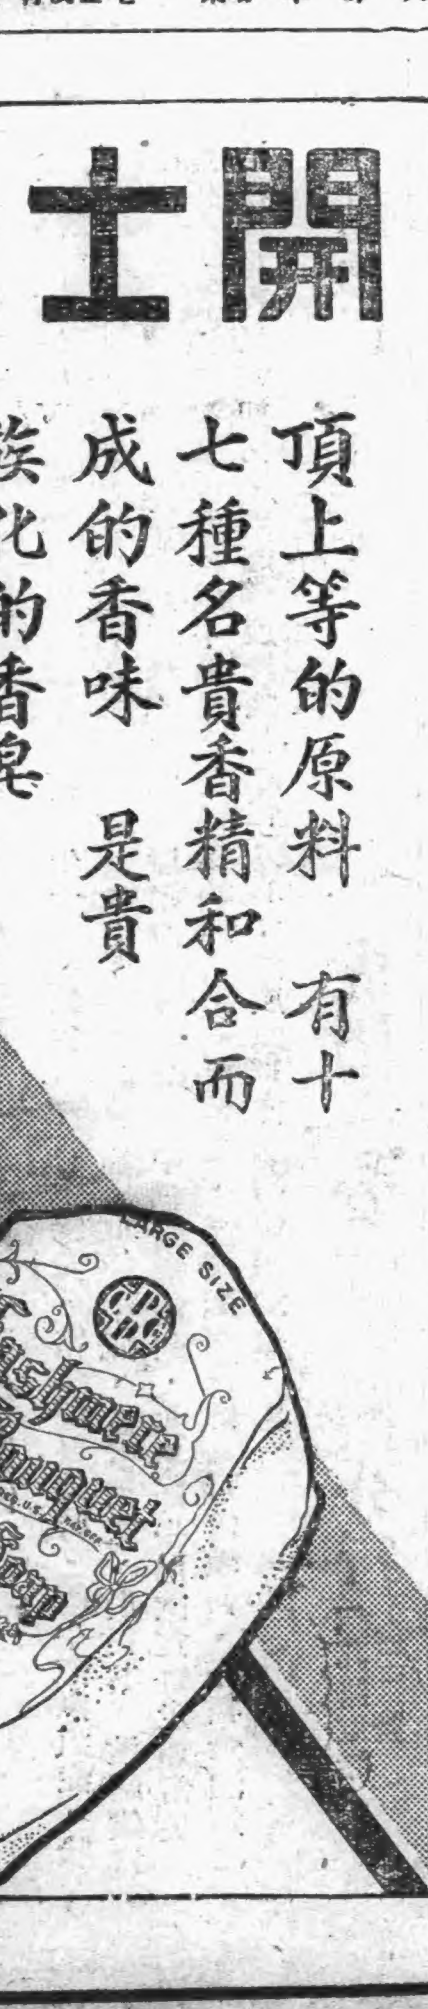 開士
頂上等的原料　有十
七種名貴香精和合而
成的香味　是貴
族化的香皂
LARGE SIZE
Cashmere
Bouquet
Soap